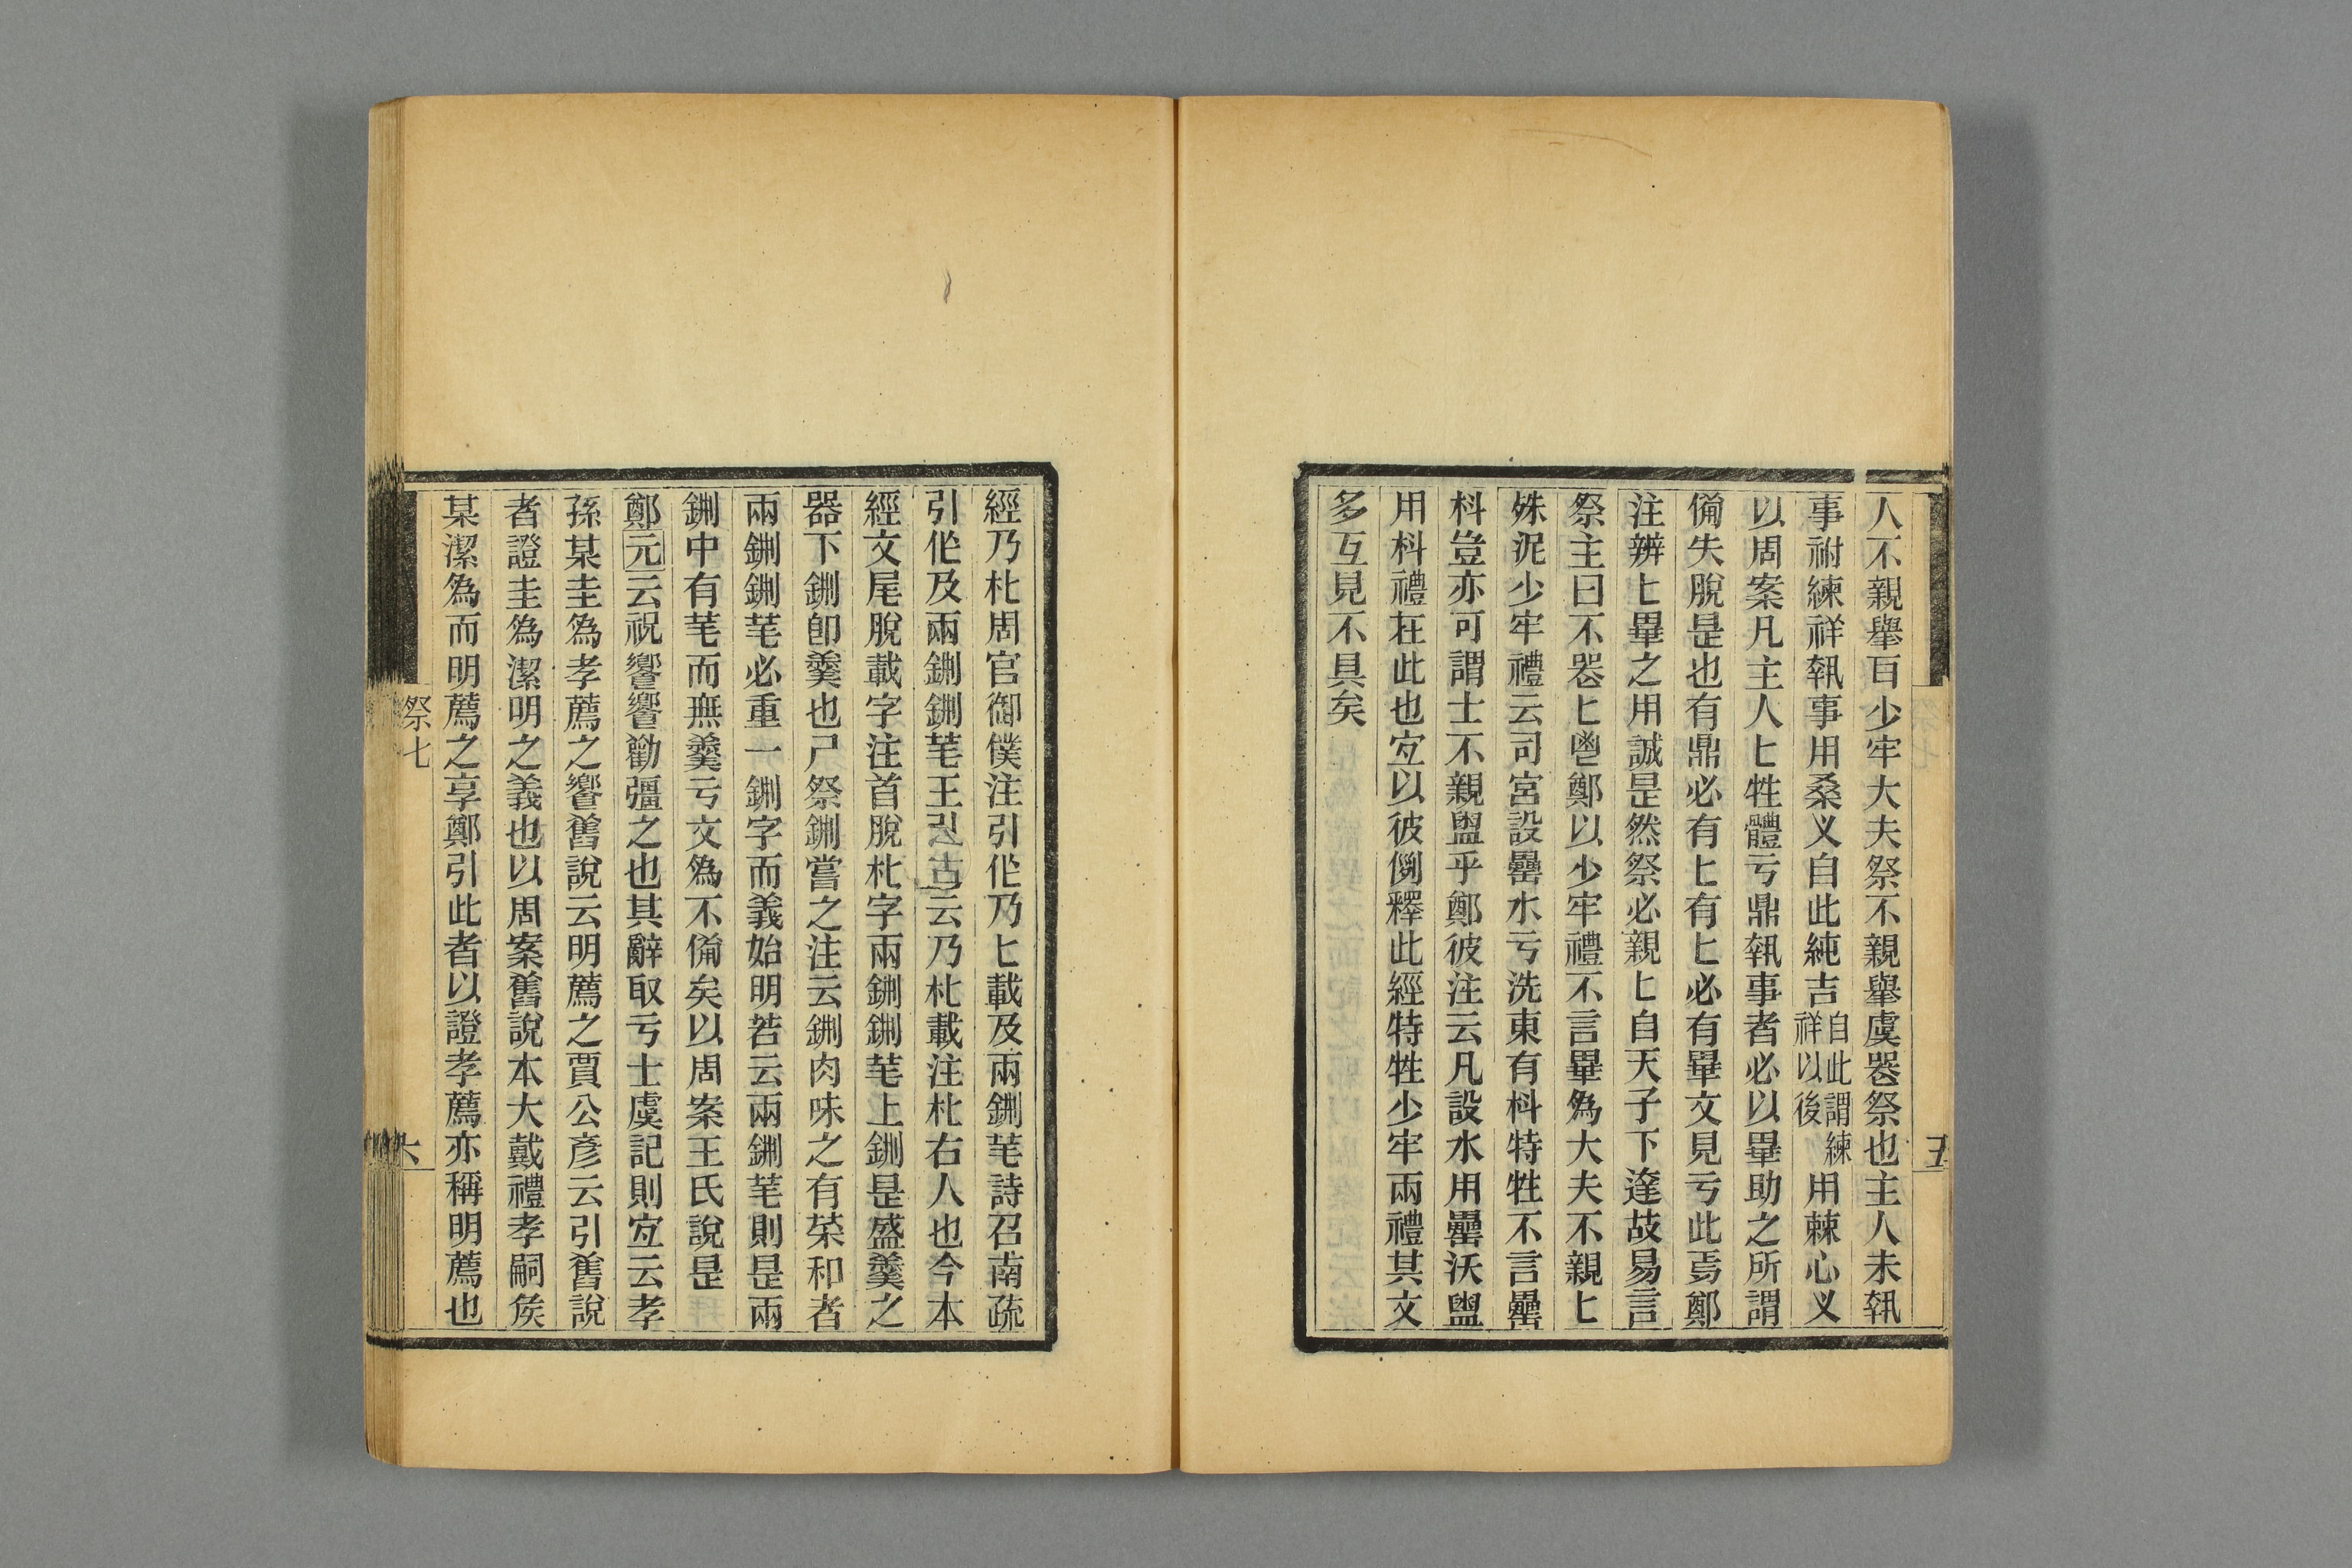 人不親舉百少牢大夫祭不親舉虞器祭也主人未執
事祔練祥執事用桑义自此純吉自此謂練祥以後用棘心义
以周案凡主人匕牲體亏鼎執事者必以畢助之所謂
僃失脫是也有鼎必有匕有匕必有畢文見亏此焉鄭
注辨匕畢之用誠是然祭必親匕自天子下達故易言
祭主曰不器匕鬯鄭以少牢禮不言畢爲大夫不親匕
殊泥少牢禮云司宮設罍水亏洗東有枓特牲不言罍
枓豈亦可謂士不親盥乎鄭彼注云凡設水用罍沃盥
用枓禮在此也宐以彼例釋此經特牲少牢兩禮其文
多互見不具矣
五
經乃朼周官御僕注引作乃匕載及兩鉶鉶芼詩召南疏
引作及兩鉶鉶芼王引之云乃朼載注朼右人也今本
經文尾脫載字注首脫朼字兩鉶鉶芼上鉶是盛羹之
器下鉶卽羹也尸祭鉶嘗之注云鉶肉味之有菜和者
兩鉶鉶芼必重一鉶字而義始明若云兩鉶芼則是兩
鉶中有芼而無羹亏文爲不僃矣以周案王氏說是
鄭元云祝饗饗勸彊之也其辭取亏士虞記則宐云孝
孫某圭爲孝薦之饗舊說云明薦之賈公彥云引舊說
者證圭爲潔明之義也以周案舊說本大戴禮孝嗣矦
某潔爲而明薦之享鄭引此者以證孝薦亦稱明薦也
祭七
六